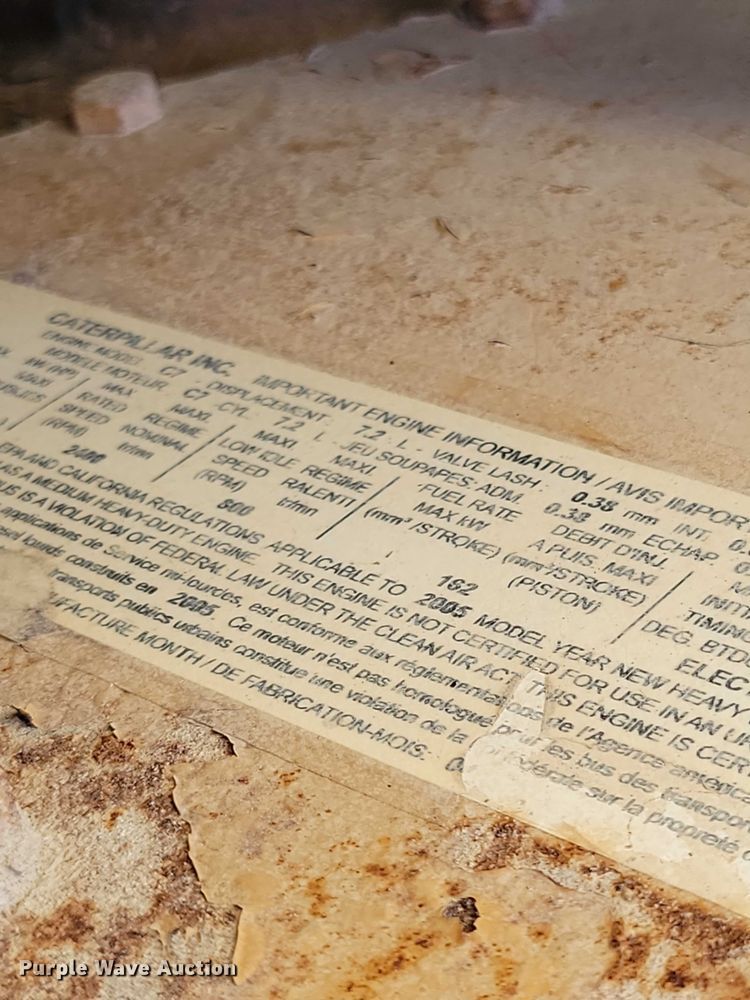 CATERPILLAR INC. IMPORTANT ENGINE INFORMATION / AVIS IMPOR
ENGINE MODEL C7 DISPLACEMENT: 7.2 L - VALVE LASH: 0.38 mm INT. 0.
MODELE MOTEUR C7 CYL. 7.2 L - JEU SOUPAPES: ADM. 0.38 mm ECHAP.
kW (HP) MAX MAXI FUEL RATE DEBIT D'INJ.
MAXI RATED REGIME LOW IDLE REGIME MAX kW A PUIS. MAXI INIT
SPEED NOMINAL SPEED RALENTI (mm³/STROKE) (mm³/STROKE) TIMING
(RPM) tr/mn (RPM) tr/mn (PISTON) DEG. BTD
2400 800 192 ELEC
EPA AND CALIFORNIA REGULATIONS APPLICABLE TO 2005 MODEL YEAR NEW HEAVY
AS A MEDIUM HEAVY-DUTY ENGINE. THIS ENGINE IS NOT CERTIFIED FOR USE IN AN UR
BUS IS A VIOLATION OF FEDERAL LAW UNDER THE CLEAN AIR ACT. THIS ENGINE IS CER
applications de Service mi-lourdes, est conforme aux réglementations de l'Agence américa
lourds construits en 2005. Ce moteur n'est pas homologué pour les bus des transpor
transports publics urbains constitue une violation de la fédérale sur la propreté d
FACTURE MONTH / DE FABRICATION-MOIS:
Purple Wave Auction